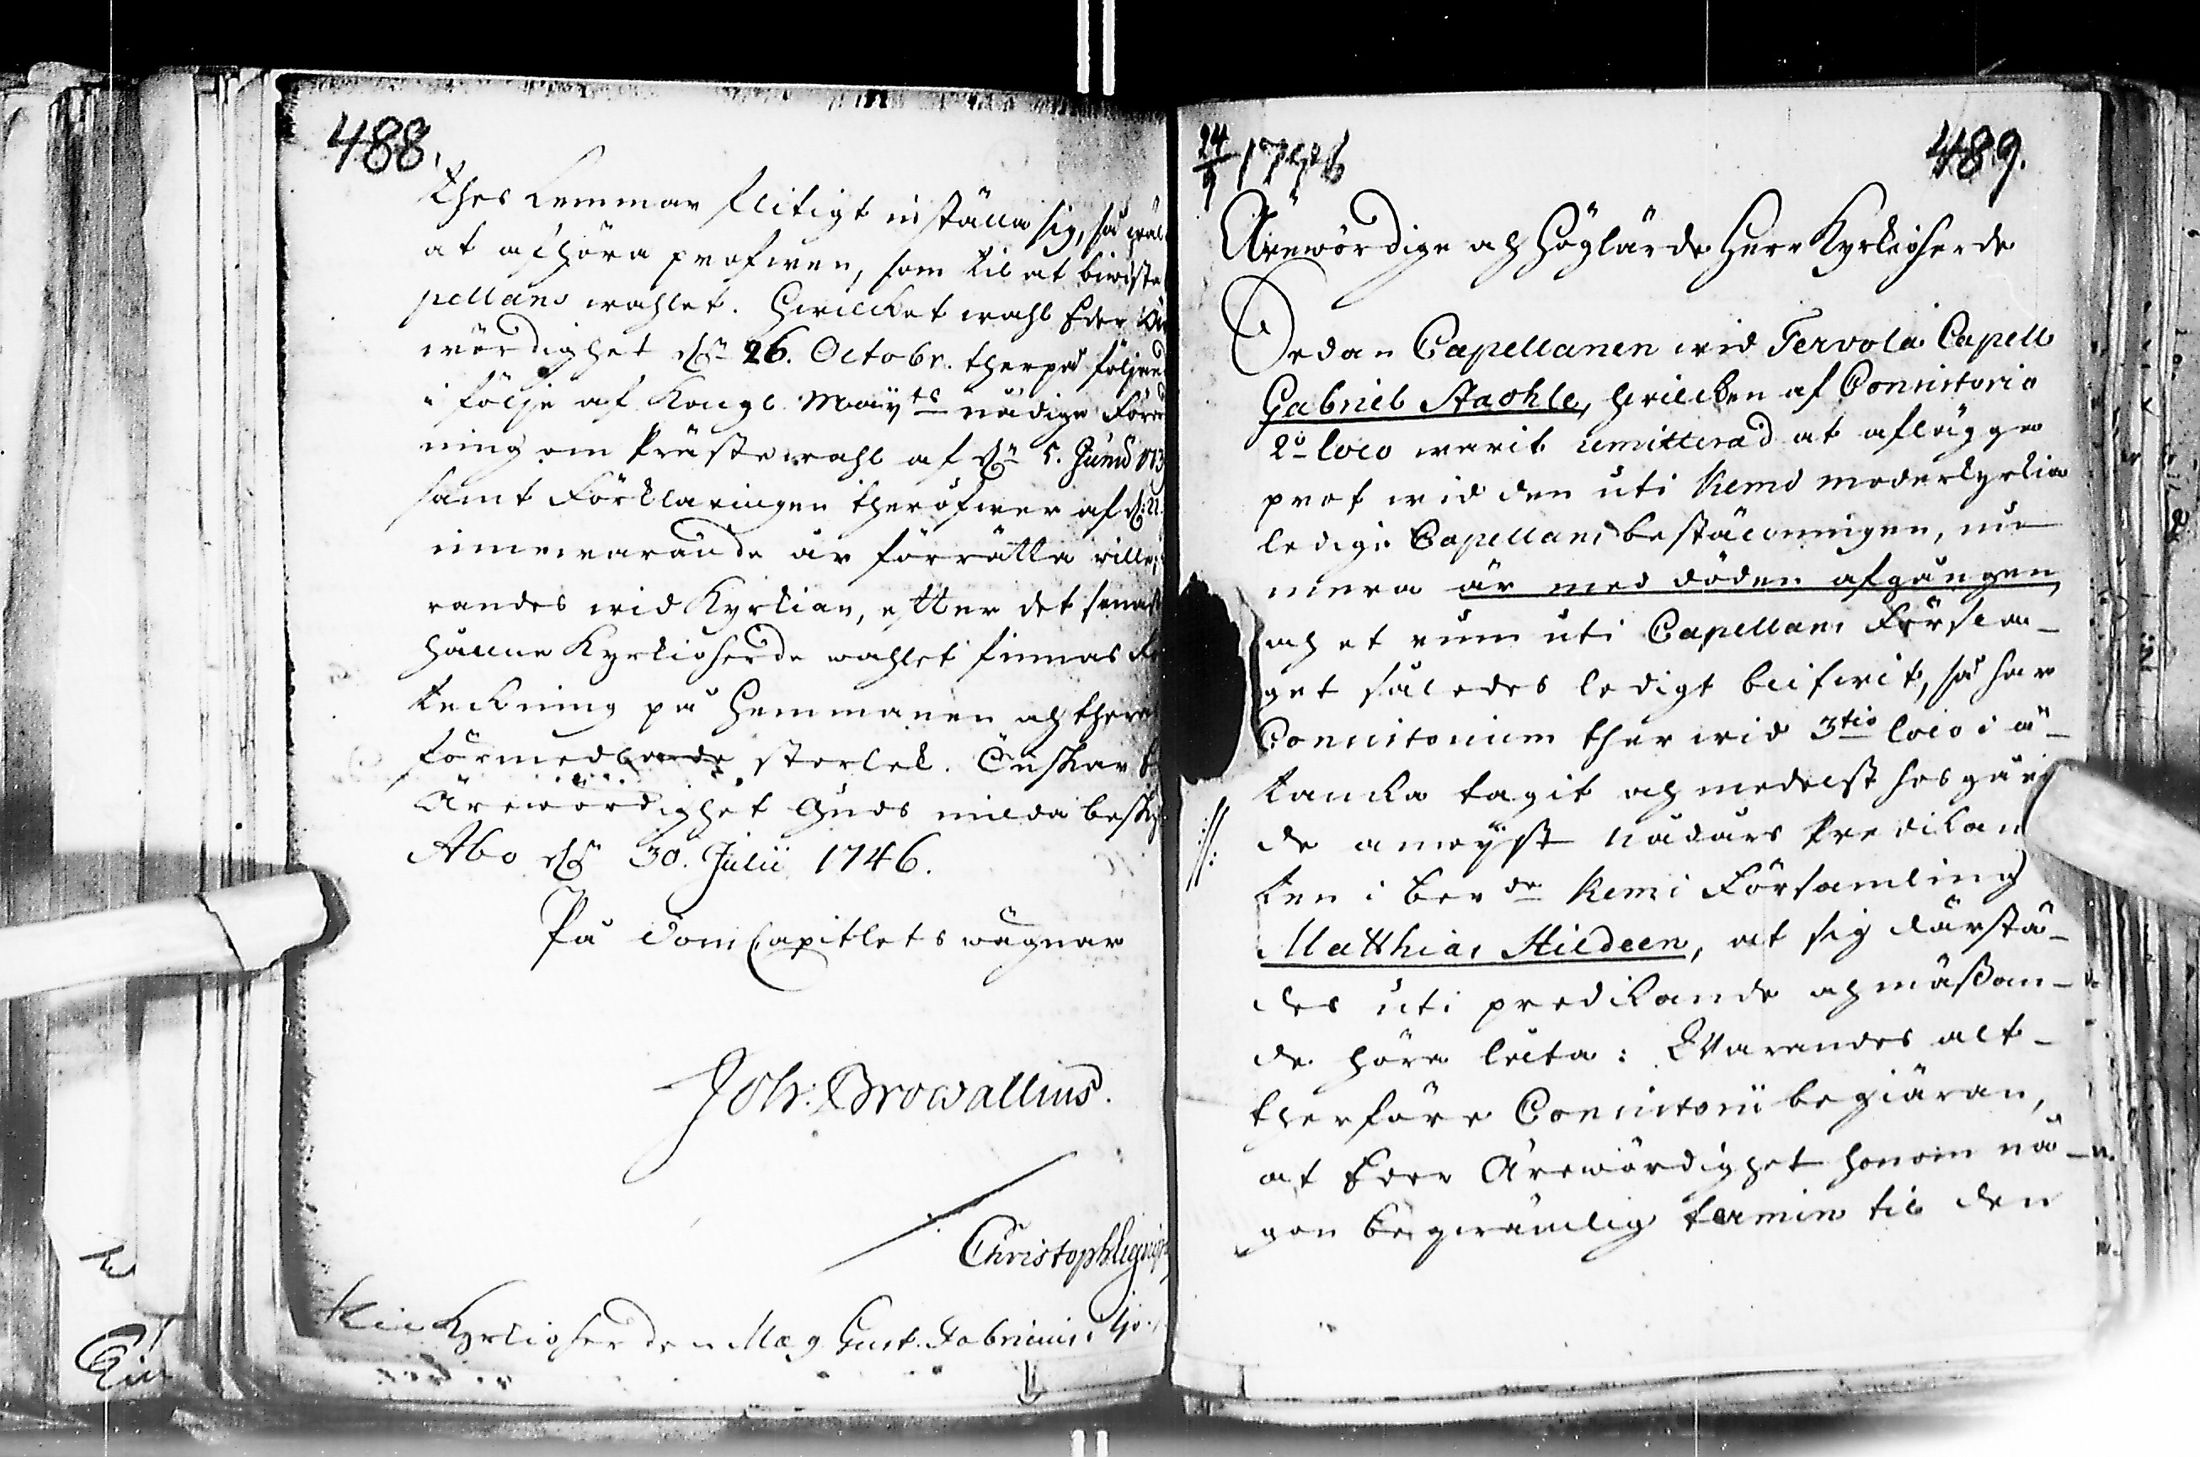 488.
thes kommar flitigt inställa sig, så wäl
at afhöra profwen, som til at biwista
pellans wahlet. Hwilcket wahl Eder Äre
wördighet dn 26. Octobr. therpå följand
i följe af Kongl. Mayts nådige Förord
ning om Prästewahl af dn 5. Junii
samt Förklaringen theröfwer af d.
innewarande år förrätta
randes wid Kyrkian, efter det senast
hålne Kyrkioherde wahlet finnas
teckning på Hemmanen och theras
förmedlade storlek. Önskar
Ärewördighet Guds milda besk
Åbo dn 30. Julii 1746.
På DomCapitlets wägnar
Joh: Browallius.
Christoph.
Kyrkioherden Mag. Gust. Fabricius
24/9 1746
489.
Ärewördige och Höglärde Herr Kyrkioherde
Sedan Capellanen wid Tervola Capell
Gabriel Staohle, hwilcken af Consistorio
2o loco warit remitterad at aflägga
prof wid den uti Kemi moderkyrkia
lediga Capellansbeställningen, nu
mera är med döden afgången,
och et rum uti Capellans Försla-
get således ledigt blifwit, så har
Consistorium ther wid 3tio loco i å-
tancka tagit och medelst hosgåen
de nådårs Predikan
ten i berde Kemi Församling
Matthias Hildeen, at sig därstä-
des uti predikande och mässan-
de höra låta: Warandes alt-
therföre Consistorii begiäran,
at Eder Ärewördighet honom nå-
gon beqwämlig termin til den